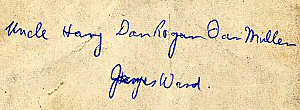 Uncle Harry Dan Rogan Dan Mullen
James Ward.